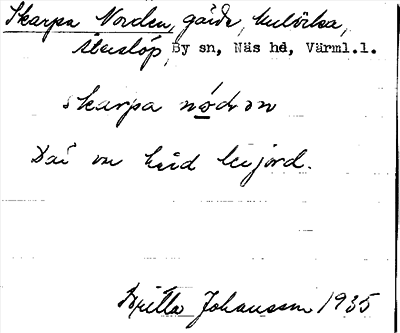 Skarpa Norden, gärde, Kulvika,
Ålerslöp, By sn, Näs hd, Värml.l.
skarpa nødron
Dai va hård lerjord.
Britta Johansson 1935